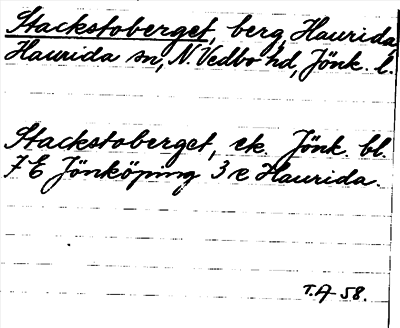 Stackstoberget, berg, Haurida,
Haurida sn, N. Vedbo hd, Jönk. l.
Stackstoberget, ek. Jönk. bl.
7 E Jönköping 3 e Haurida.
T.A 58.